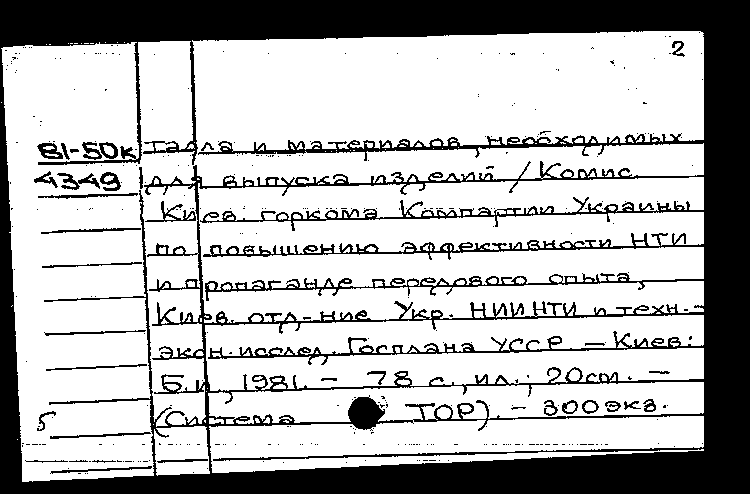 2
В1-50к талла и материалов, необходимых
4349 для выпуска изделий / Комис.
Киев. горкома Компартии Украины
по повышению эффективности НТИ
и пропаганде передового опыта,
Киев. отд-ние Укр. НИИНТИ и техн.-
экон. исслед. Госплана УССР. – Киев:
Б.и., 1981. – 78 с., ил.; 20см. –
5 (Система ТОР). – 300экз.